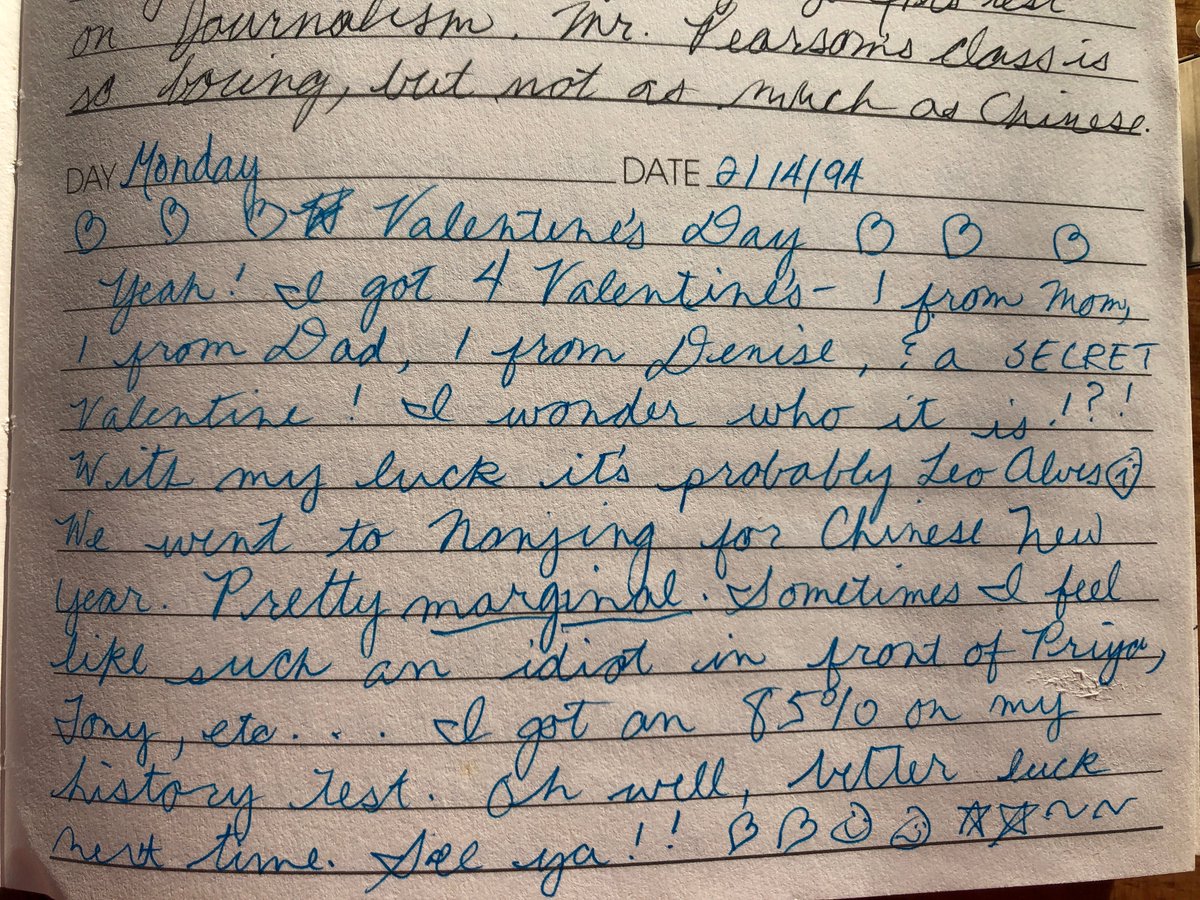 this test
on Journalism. Mr. Pearson's class is
so boring, but not as much as Chinese.
DAY Monday DATE 2/14/94
Valentine's Day
Yeah! I got 4 Valentine's - 1 from Mom,
1 from Dad, 1 from Denise, & a SECRET
Valentine! I wonder who it is!?!
With my luck it's probably Leo Alves
We went to Nanjing for Chinese New
Year. Pretty marginal. Sometimes I feel
like such an idiot in front of Priya,
Tony, etc... I got an 85% on my
history test. Oh well, better luck
next time. See ya!!